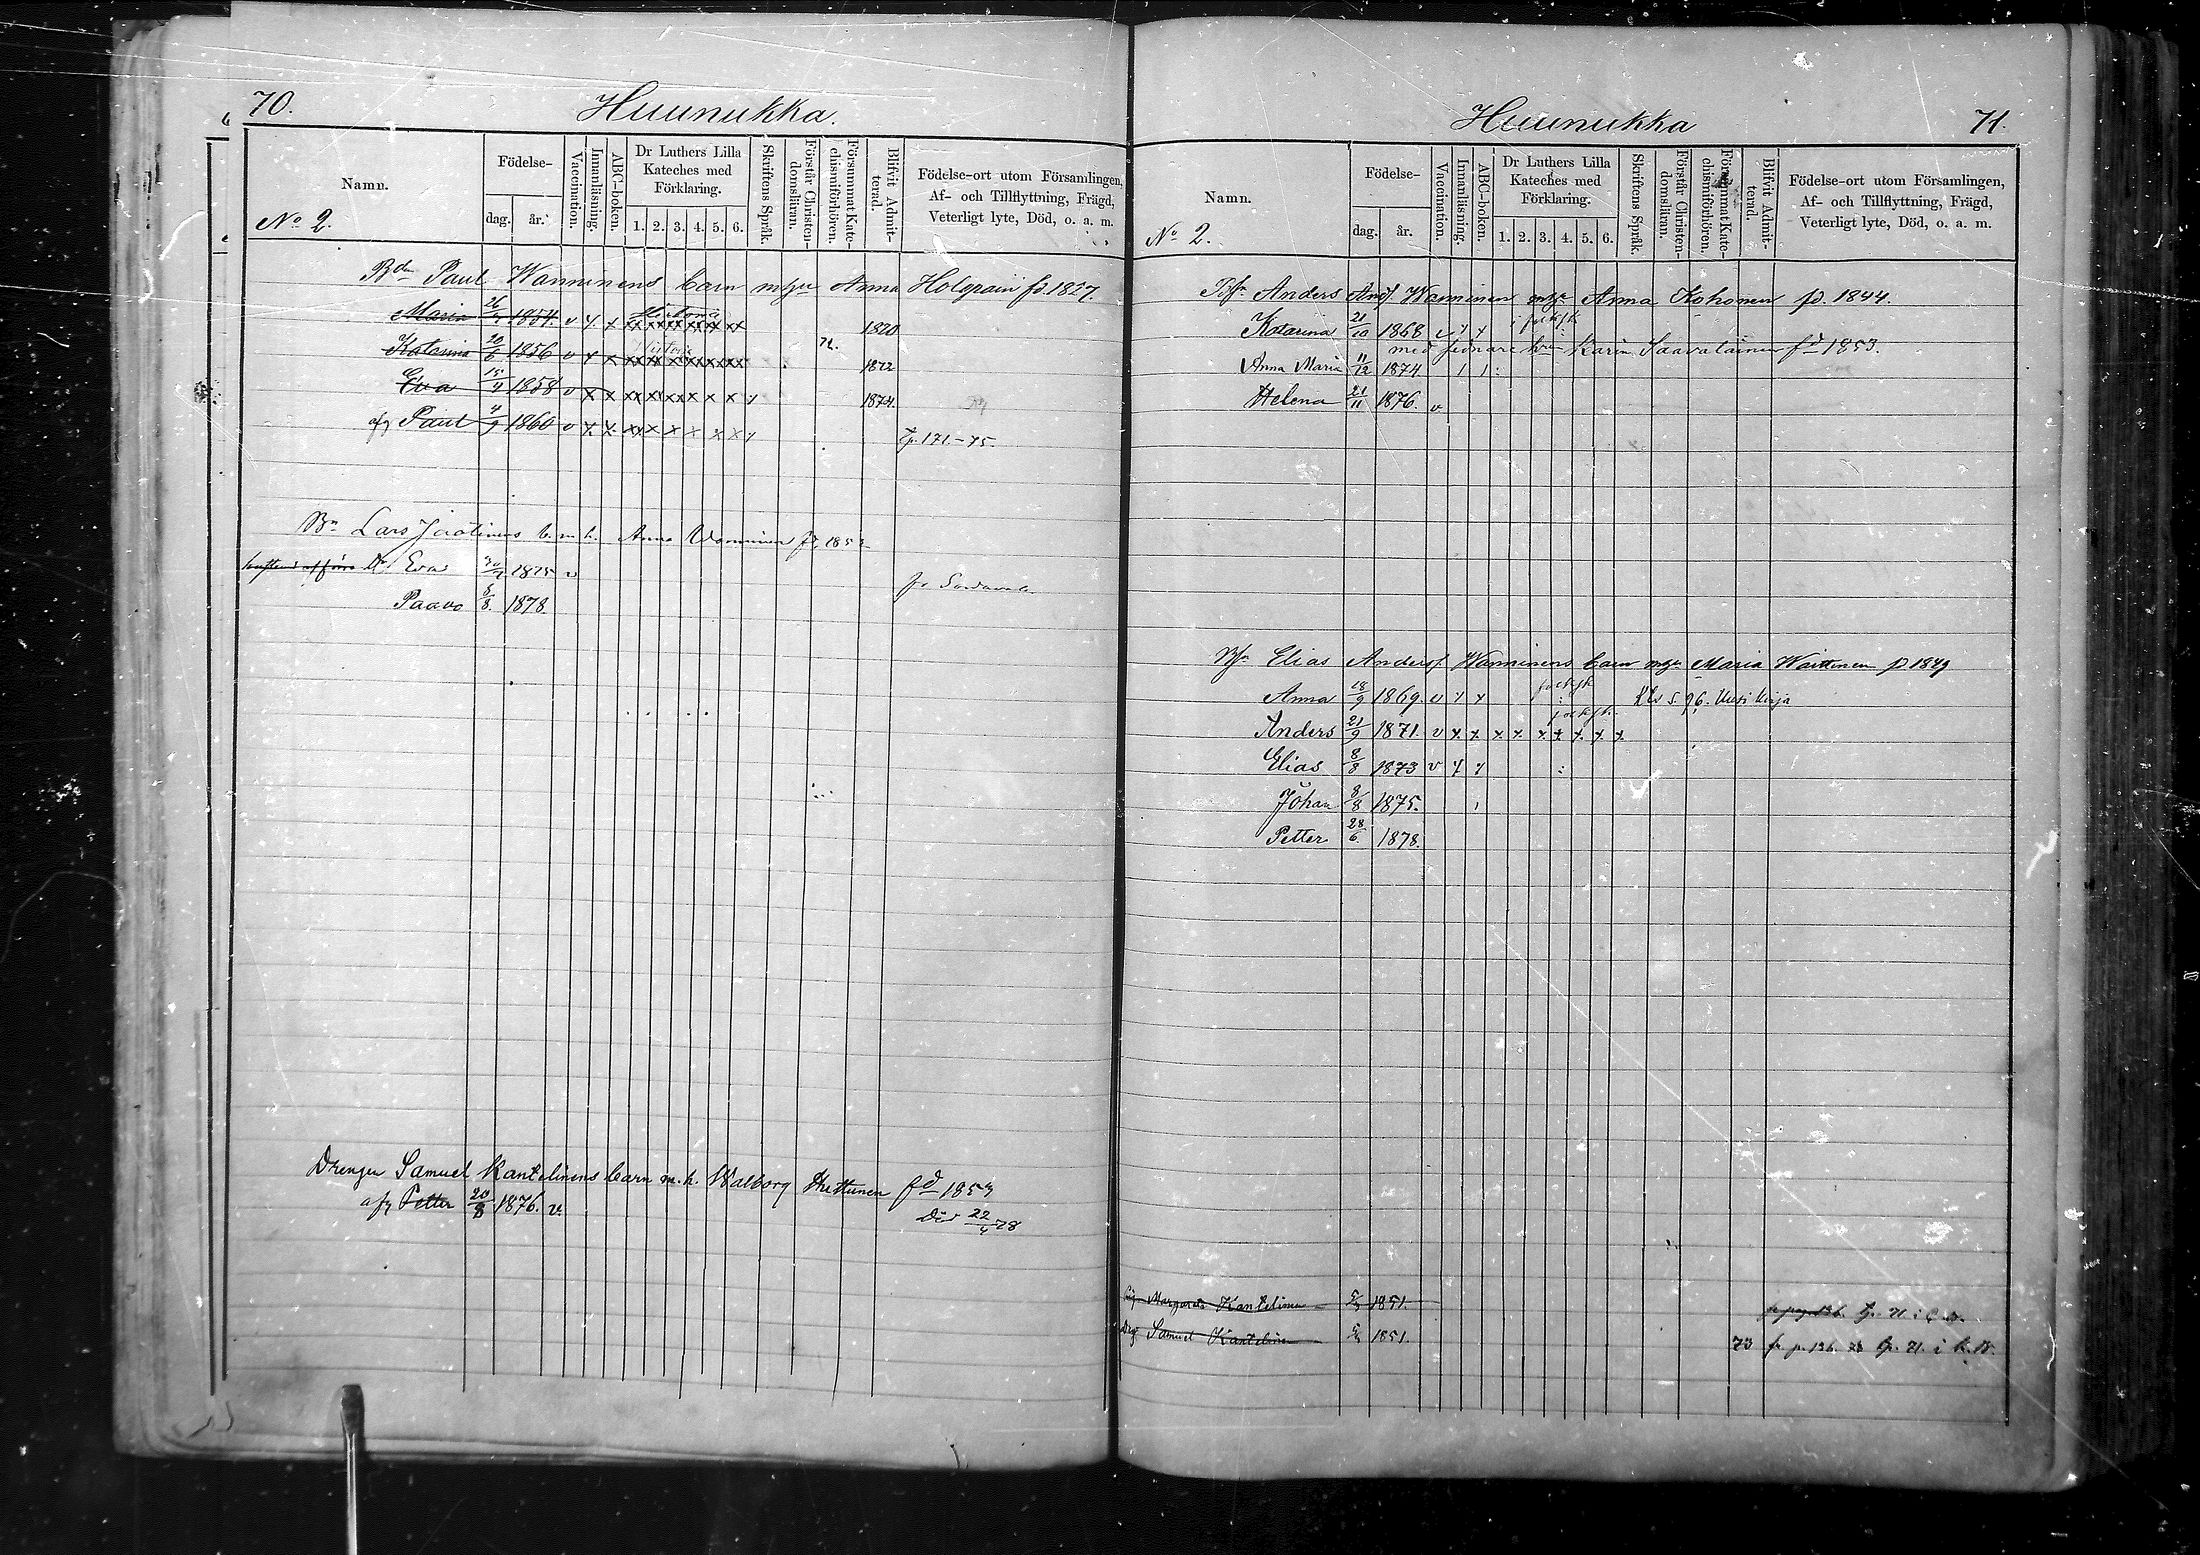 70.
Huunukka.
Namn.
Födelse-
dag.
år.
Vaccination.
Innanläsning.
ABC-boken.
Dr Luthers Lilla Kateches med Förklaring.
1. 2. 3. 4. 5. 6.
Skriftens Språk.
Förstår Christendomsläran.
Försummat Katechismiförhören.
Blifvit Admitterad.
Födelse-ort utom Församlingen,
Af- och Tillflyttning, Frägd,
Veterligt lyte, Död, o. a. m.
No 2.
Bdn Paul Wanninens barn m hu Anna Holopain fd. 1827.
Maria 1854. v 1870
Katarina 20/6 1856 v 1872
Eva 15/9 1858 v 1874.
afg Paul 4/9 1860 v p. 171.-75.
Bn Lars b. m. h. Anna Wanninen fd. 185
Eva v
Paavo 8/8. 1878.
Drengen Samuel Kantelinens barn m. h. Walborg fd 1853
afg Petter 20/8 1876. v. Död 22/4 78
Huunukka
71.
Namn.
Födelse-
dag.
år.
Vaccination.
Innanläsning.
ABC-boken.
Dr Luthers Lilla Kateches med Förklaring.
1. 2. 3. 4. 5. 6.
Skriftens Språk.
Förstår Christendomsläran.
Försummat Katechismiförhören.
Blifvit Admitterad
Födelse-ort utom Församlingen,
Af- och Tillflyttning, Frägd,
Veterligt lyte, Död, o. a. m.
No 2.
Anders And. Wanninen Anna Kohonen fd. 1844.
Katarina 21/10 1868 folksk.
med sednare hu Karin Saavalainen fd 1853.
Anna Maria 11/12 1874
Helena 21/11 1876. v
Elias Anders Wanninens barn m hu Maria Waittinen fd 1849
Anna 18/9 1869. v folksk s. 96. Uusi kirja
folksk.
Anders 21/9 1871. v x x x x x x x x x
Elias 8/8 1873 v
Johan 8/8 1875.
Petter 28/6. 1878.
Margareta Kantelinen 1851. p. 71 i
Samuel Kantelinen 1851. 73 fr p. 136. p. 71. i k. B.